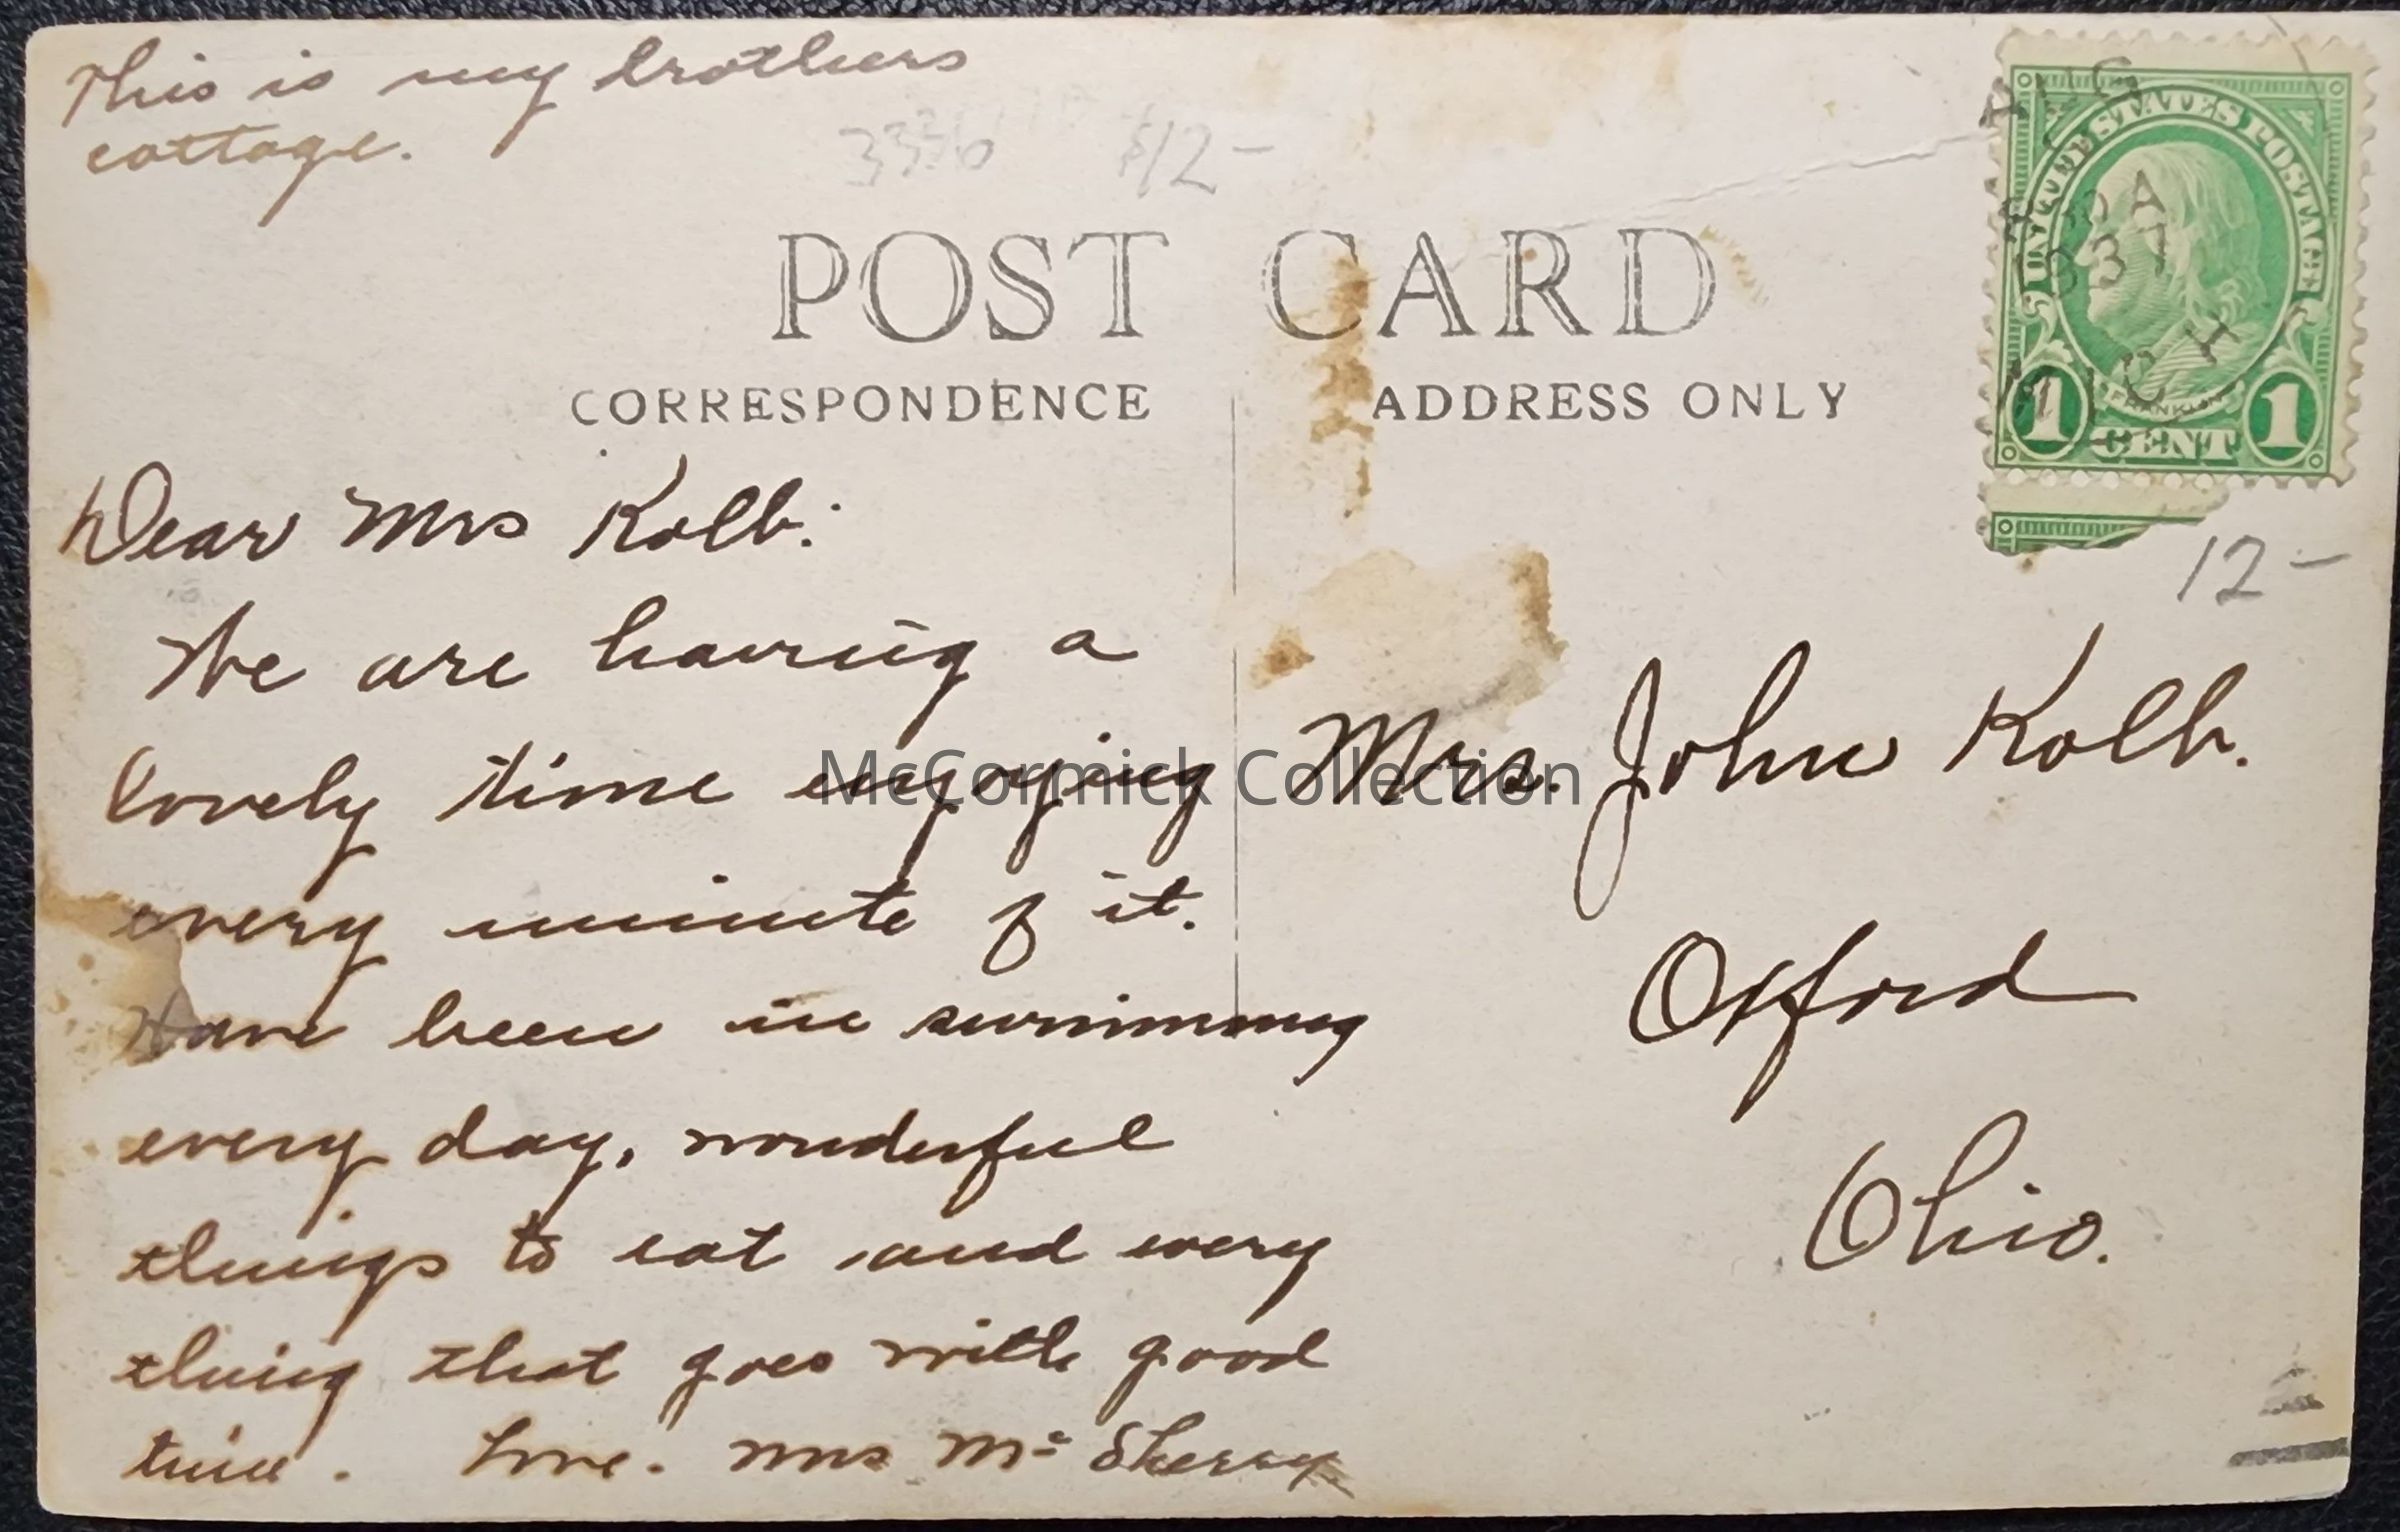 This is my brothers
cottage.
3336 $12-
POST CARD
CORRESPONDENCE
ADDRESS ONLY
UNITED STATES POSTAGE
FRANKLIN
1 CENT 1
AUG
30 A
1937
MICH
12-
Dear Mrs Kolb:
We are having a
lovely time enjoying
every minute of it.
Have been in swimming
every day, wonderful
things to eat and every
thing that goes with good
time. Love. Mrs Mc Sherry
Mrs. John Kolb.
Oxford
Ohio.
McCormick Collection